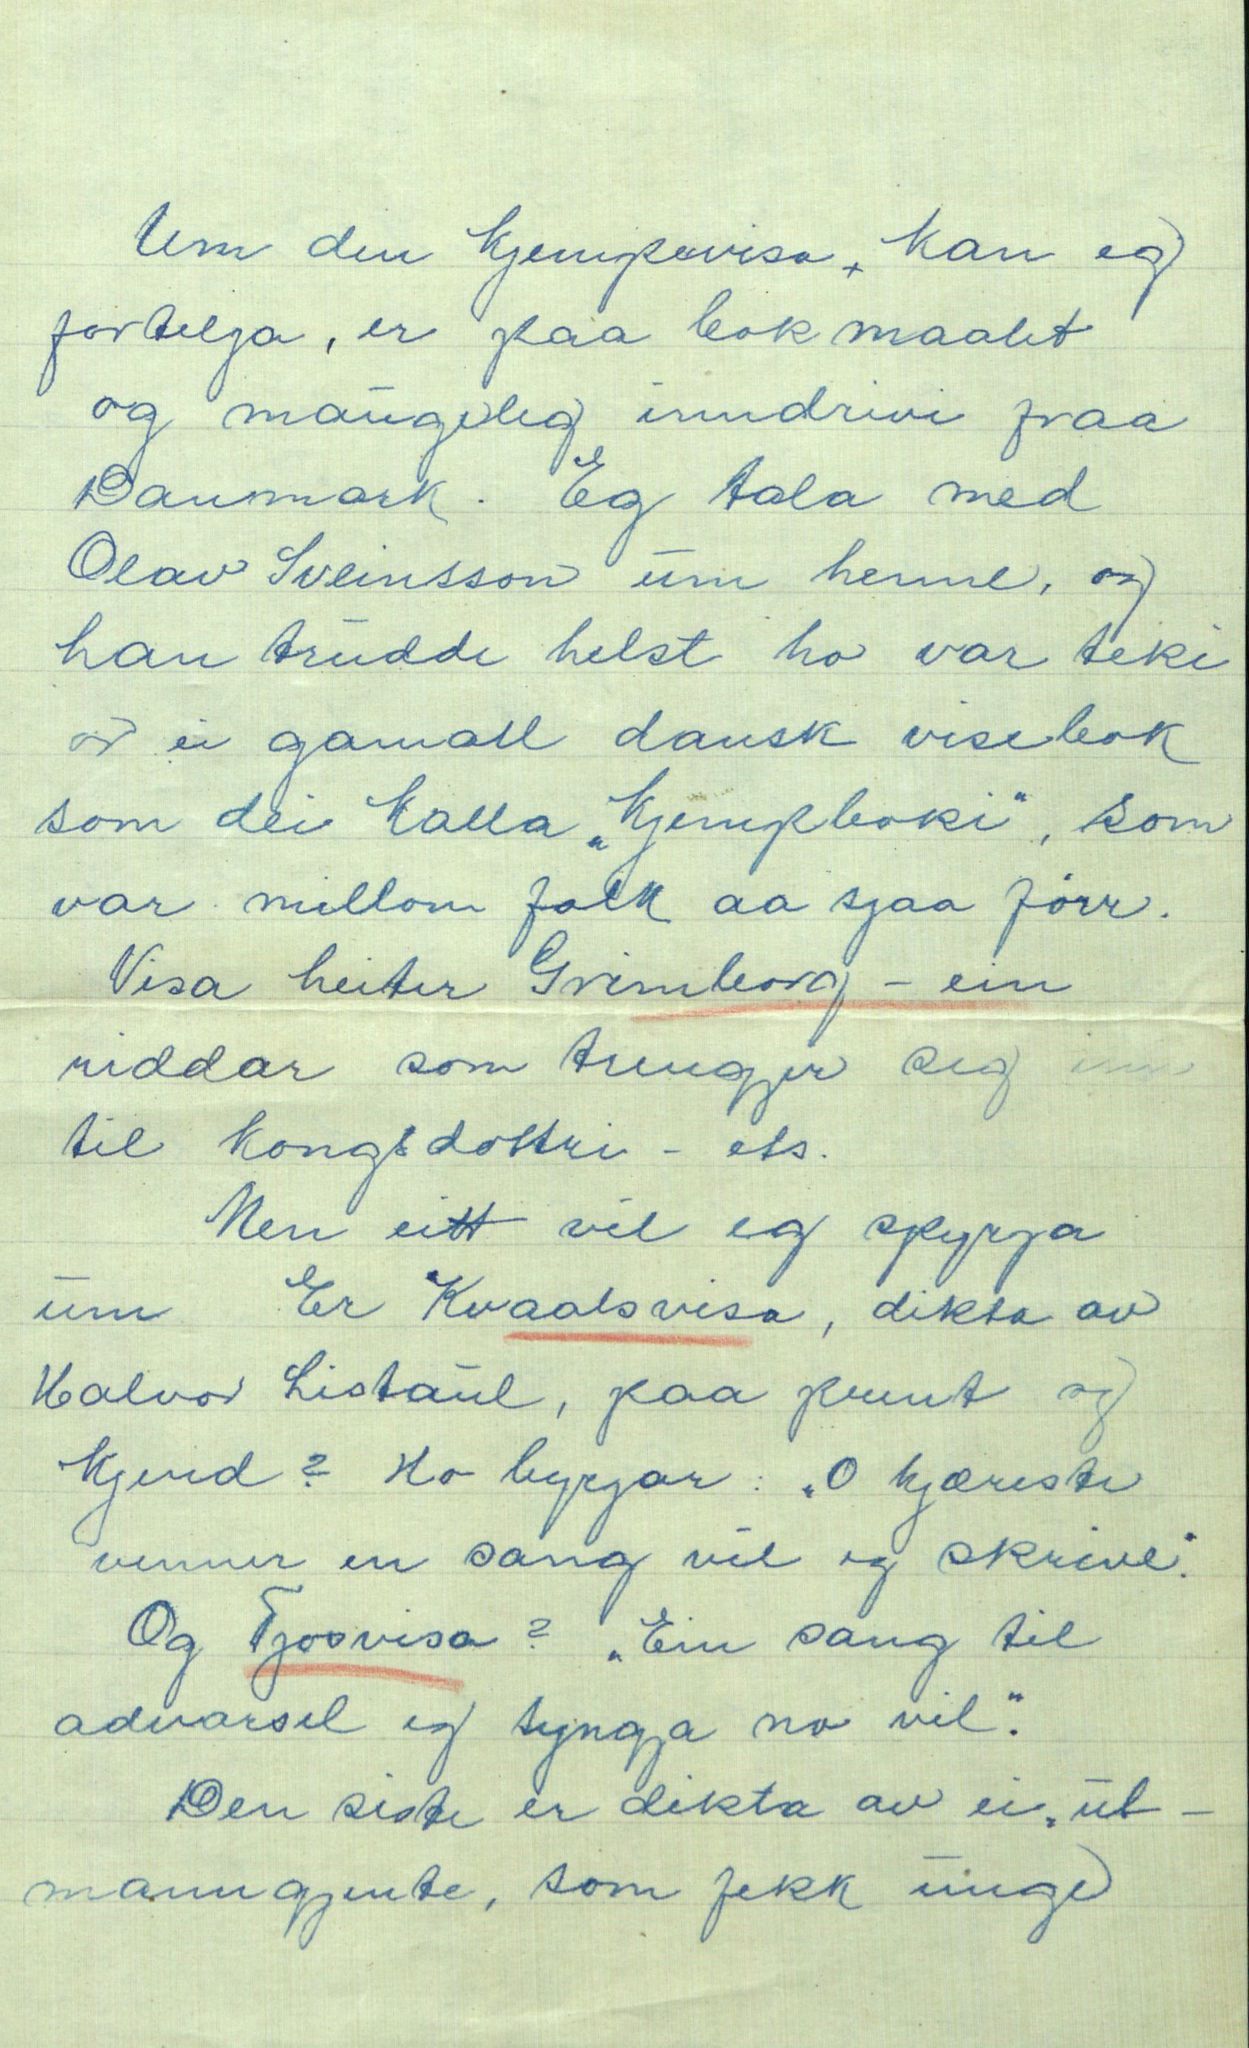 Um den kjempevisa, kan eg
fortelja, er paa bokmaalet
og maugeleg inndrivi fraa
Danmark. Eg tala med
Olav Sveinsson um henne, og
han trudde helst ho var teki
or ei gamall dansk visebok
som dei kalla „Kjempeboki", som
var millom folk aa sjaa förr.
Visa heiter Grimborg - ein
riddar som trengjer seg inn
til kongsdottri - ets.
Men eitt vil eg spyrja
um Er Kvaalsvisa, dikta av
Halvor Listaul, paa prent og
kjend? Ho byrjar: „O kjæreste
venner en sang vil eg skrive".
Og Fjosvisa? „Ein sang til
advarsel eg syngja no vil".
Den siste er dikta av ei „ut-
manngjente, som fekk unge